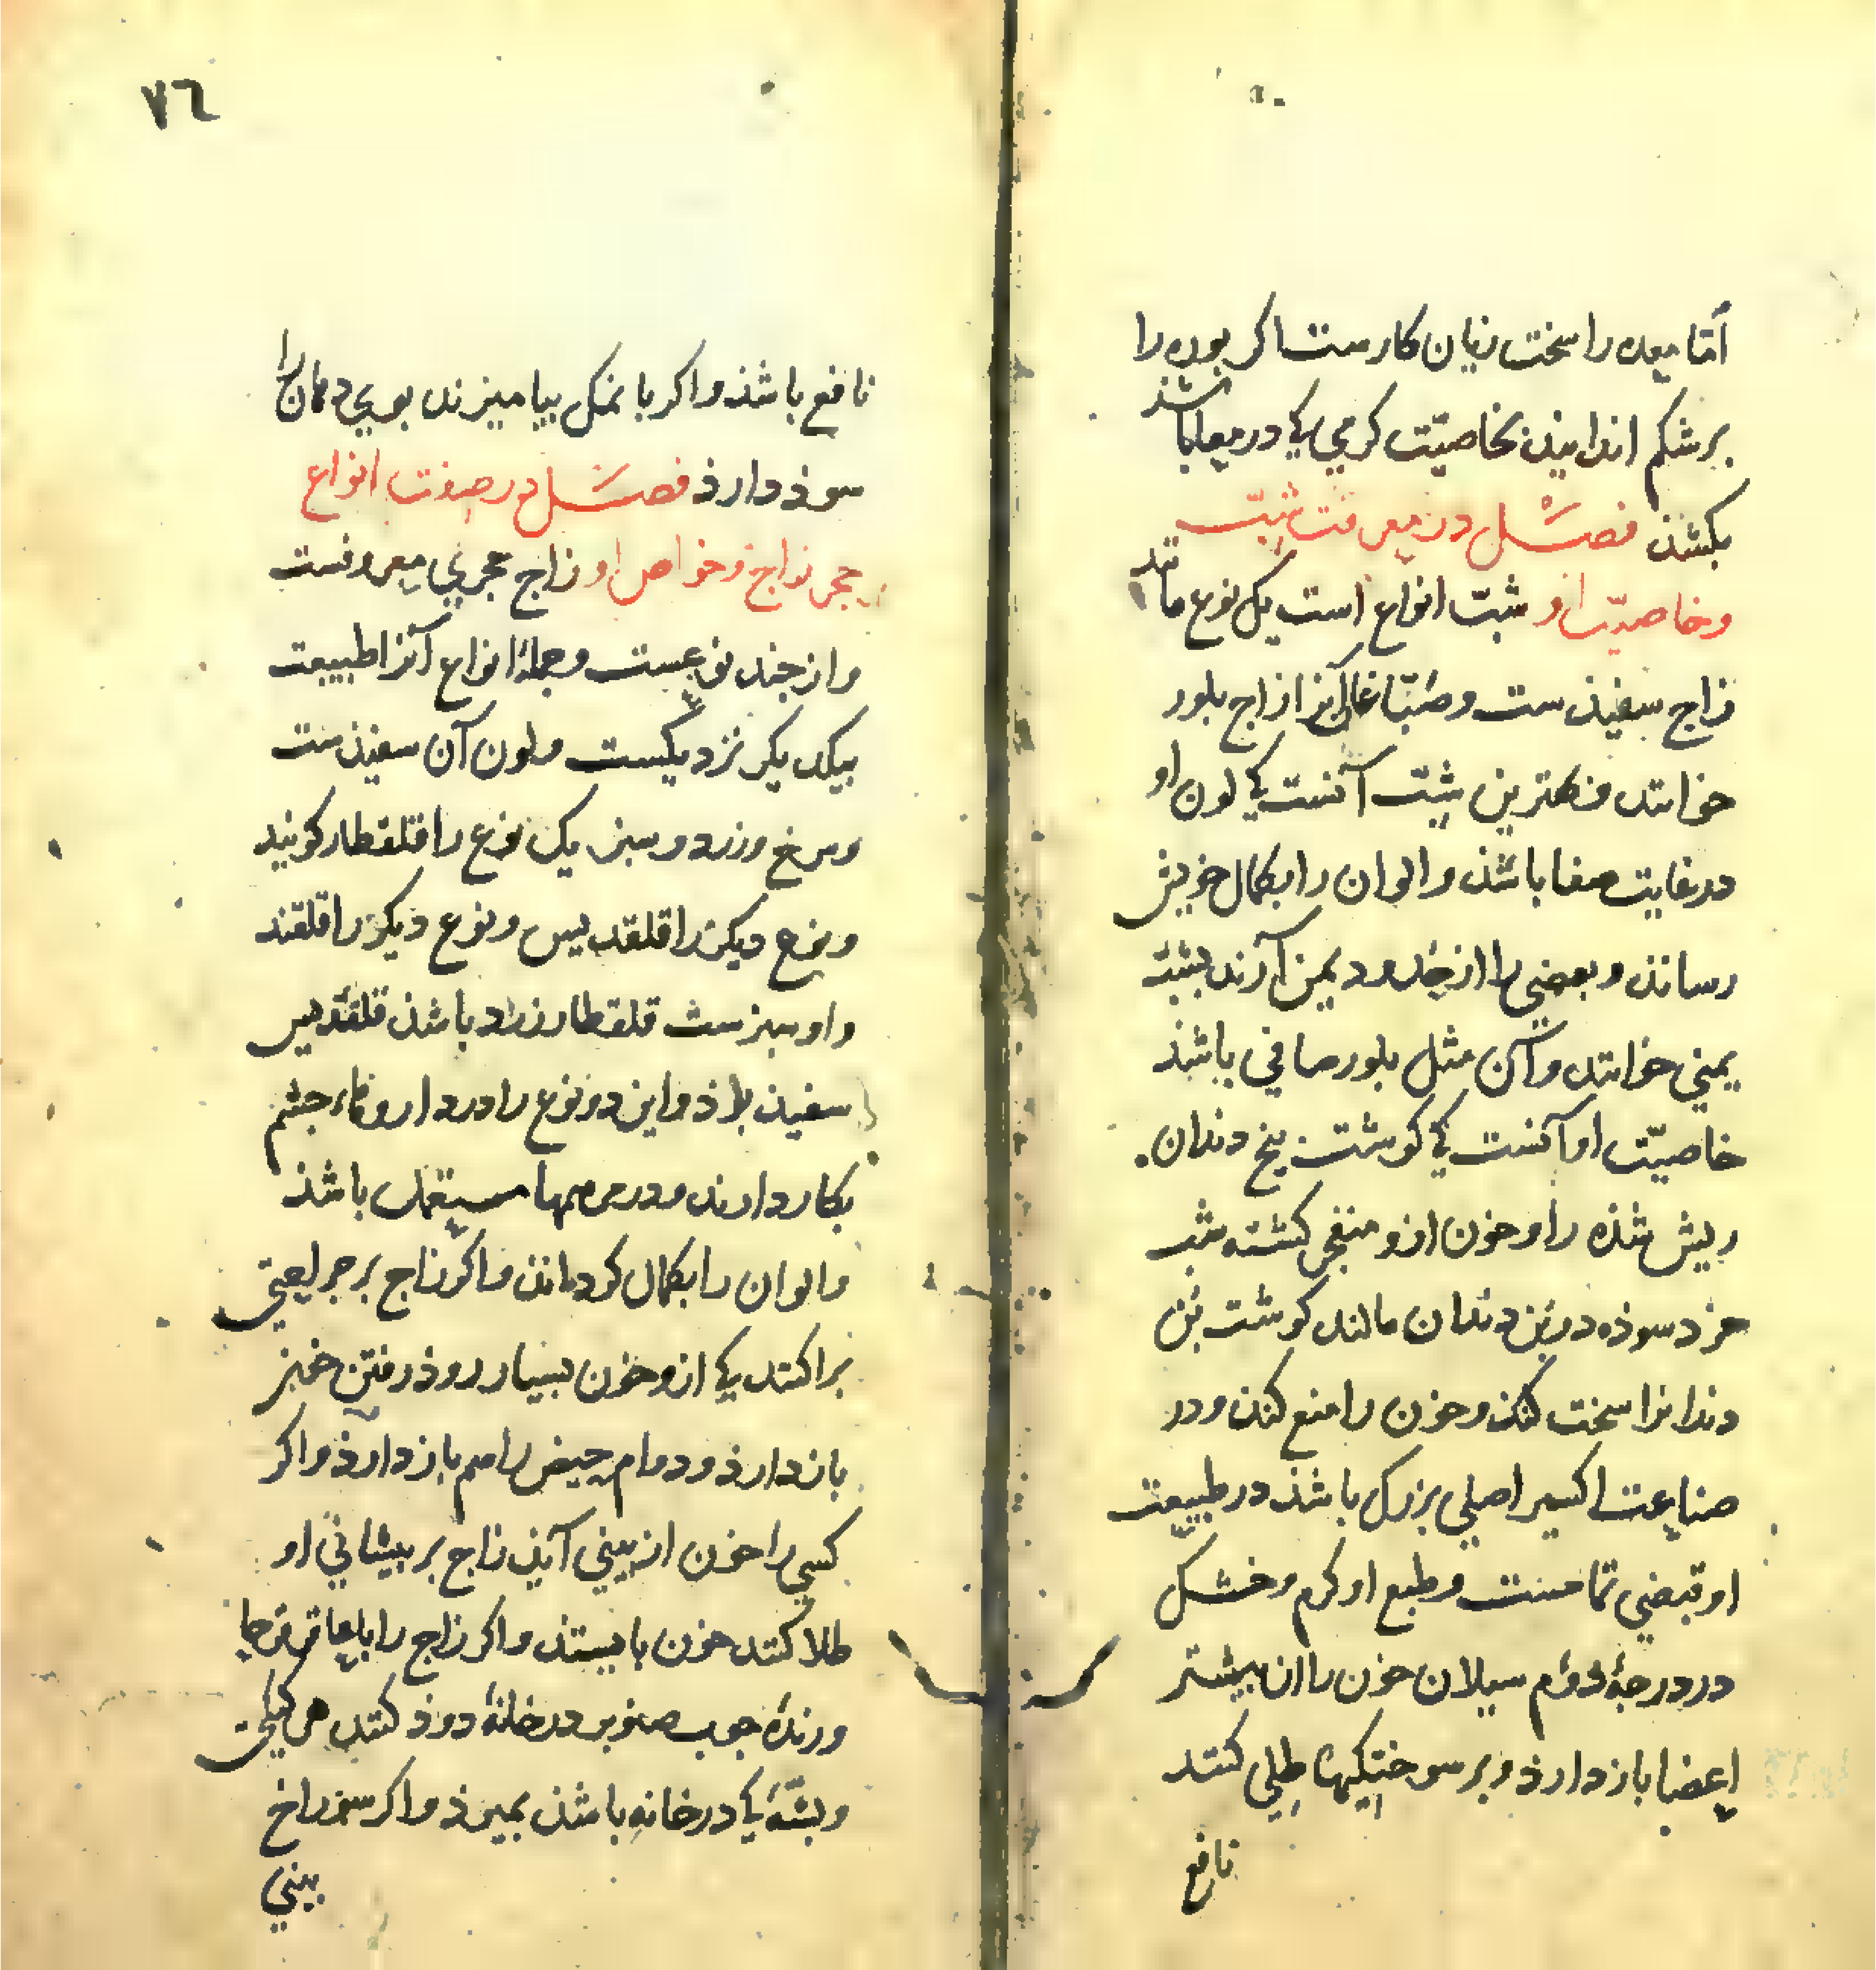 امّا معده را سخت زیان کارست اکر بوره را
برشکم انداینذ بخاصیّت کرمی کی در معا باشذ
بکشذ فصل در معرفت شبّ
وخاصیّت او شبّ انواع است یک نوع مانند
زاج سفیذست وصبّاغان آنرا زاج بلور
خوانند ونیکوترین شبّ آنست کی لون او
در غایت صفا باشذ والوان را بکمال خویش
رساند وبعضی را از حدود یمن آرند شبّ
یمنی خوانند وآن مثل بلور صافی باشذ
خاصیّت او آنست کی کوشت بیخ دندان
ریش شذه را وخون ازو منفجر کشته شب
خرد سوذه در بن دندان مالند کوشت بن
دندانرا سخت کند وخون را منع کند ودر
صناعت اکسیر اصلی بزرک باشذ در طبیعت
او قبضی تمامست وطبع او کرم وخشک
در درجهٔ دوّم سیلان خون را از بیشتر
اعضا باز دارذ وبر سوختکیها طلی کنند
نافع
٧٦
نافع باشذ واکر با نمک بیامیزند بوی دهان را
سوذ دارذ فصل در صفت انواع
حجر زاج وخواص او زاج حجری معروفست
واز چند نوعست وجملهٔ انواع آنرا طبیعت
بیکدیکر نزدیکست ولون آن سفیذست
وسرخ وزرد وسبز یک نوع را قلقطار کویند
ونوع دیکر را قلقدیس ونوع دیکر را قلقند
واو سبزست قلقطار زرد باشذ قلقدیس
سفیذ باشذ واین دو نوع را در داروهاء چشم
بکار دارند ودر مرهمها مستعمل باشذ
والوان را بکمال کرداند واکر زاج بر جراحتی
براکنند کی ازو خون بسیار روذ رفتن خون
باز دارذ ودوام حیض را هم باز دارذ واکر
کسی را خون از بینی آیذ زاج بر پیشانی او
طلا کنند خون باییستد واکر زاج را با عاقرقرحا
ورندهٔ چوب صنوبر در خانهٔ دوذ کنند هر کیکی
وپشّهٔ کی در خانه باشذ بمیرذ واکر سوراخ
بینی